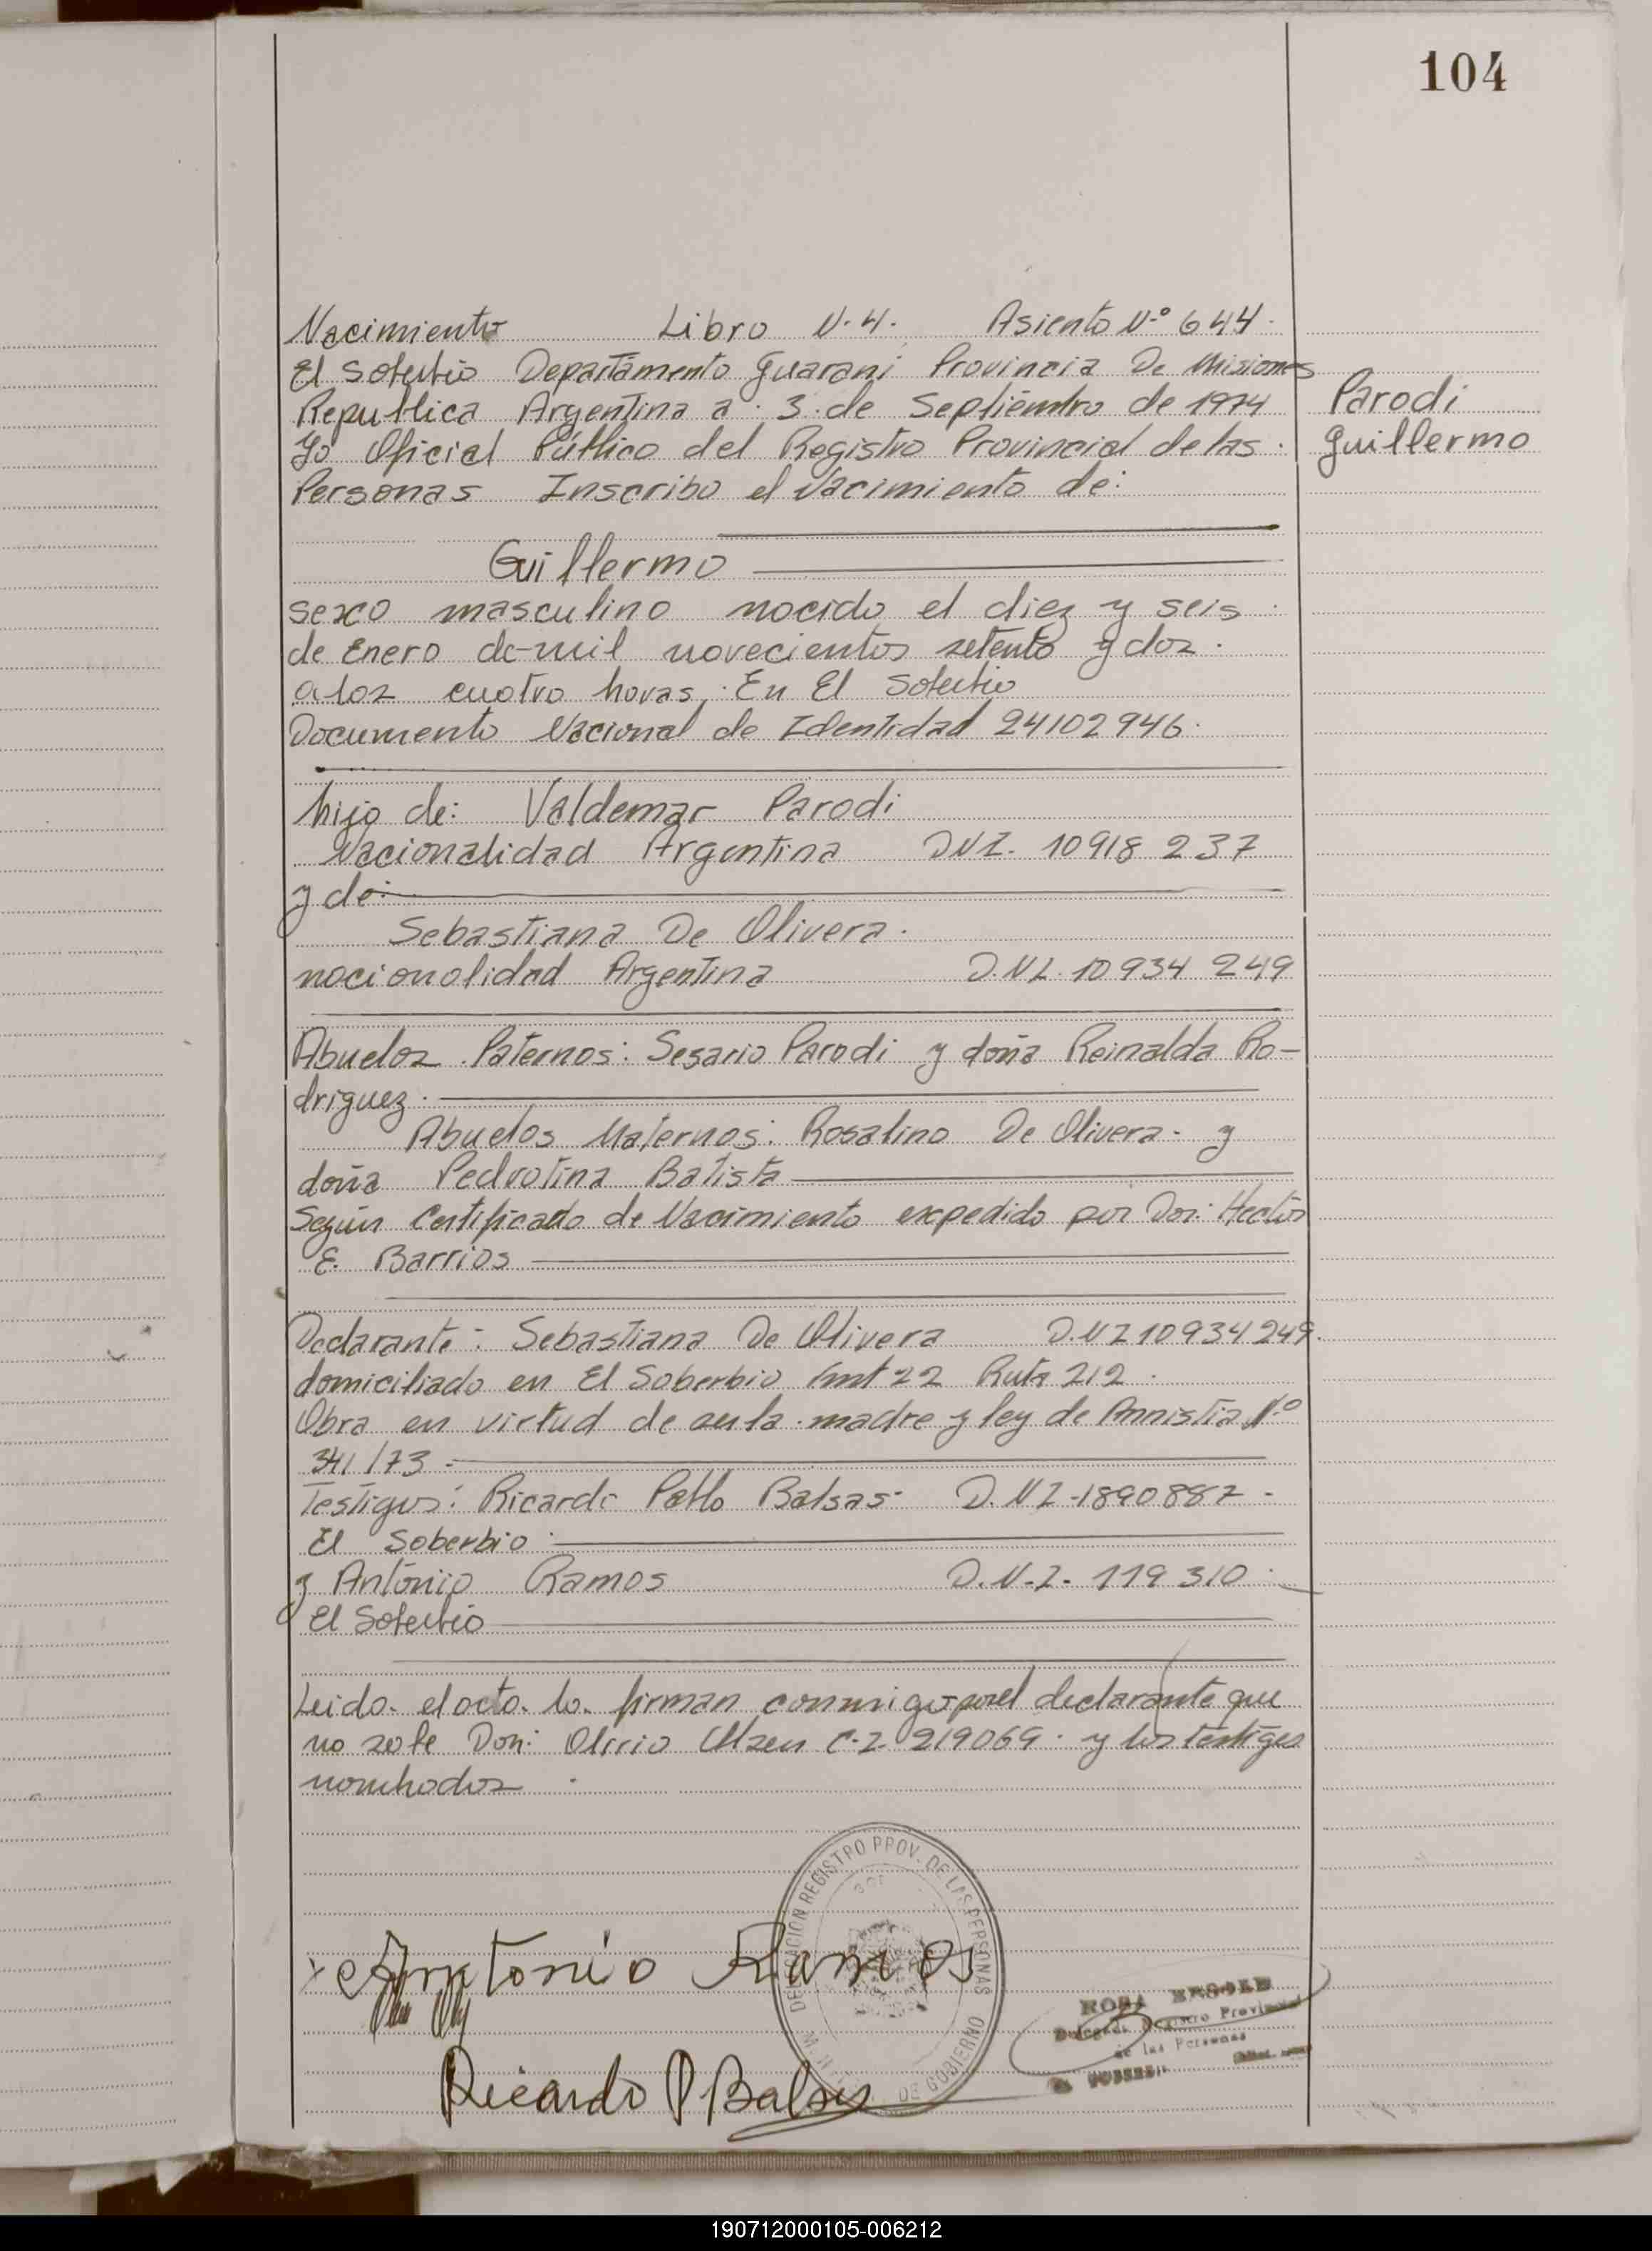 104
Nacimiento Libro N.4. Asiento N.º 644.
El Soberbio Departamento Guarani Provincia De Misiones
Republica Argentina a. 3. de Septiembre de 1974
Yo Oficial Público del Registro Provincial de las.
Personas Inscribo el Nacimiento de:
Parodi
Guillermo
Guillermo
sexo masculino nacido el diez y seis.
de Enero de mil novecientos setenta y dos.
a las cuatro horas. En El Soberbio
Documento Nacional de Identidad 24102946.
hijo de: Valdemar Parodi
Nacionalidad Argentina DNI. 10918 237
y de:
Sebastiana De Olivera.
nacionalidad Argentina D.N.I. 10934 249
Abuelos Paternos: Sesario Parodi y doña Reinalda Ro-
driguez.
Abuelos Maternos: Rosalino De Olivera. y
doña Pedrotina Batista
Según Certificado de Nacimiento expedido por Don: Hector
E. Barrios
Declarante: Sebastiana De Olivera D.N.I 10934249.
domiciliado en El Soberbio kmt 22 Ruta 212.
Obra en virtud de ser la madre y ley de Amnistia N.º
341/73.
Testigos: Ricardo Pablo Balsas. D.N.I-1890887-
El Soberbio.
y Antonio Ramos D.N.I. 119 310.
El Soberbio
Leido el acta la firman conmigo por el declarante que
no sabe Don: C.I. 219069. y los testigos
nombrados.
DELEGACION REGISTRO PROV. DE LAS PERSONAS
DE GOBIERNO
Antonio Ramos
Ricardo P Balsas
ROSA
Delegada Registro Provincial
de las Personas